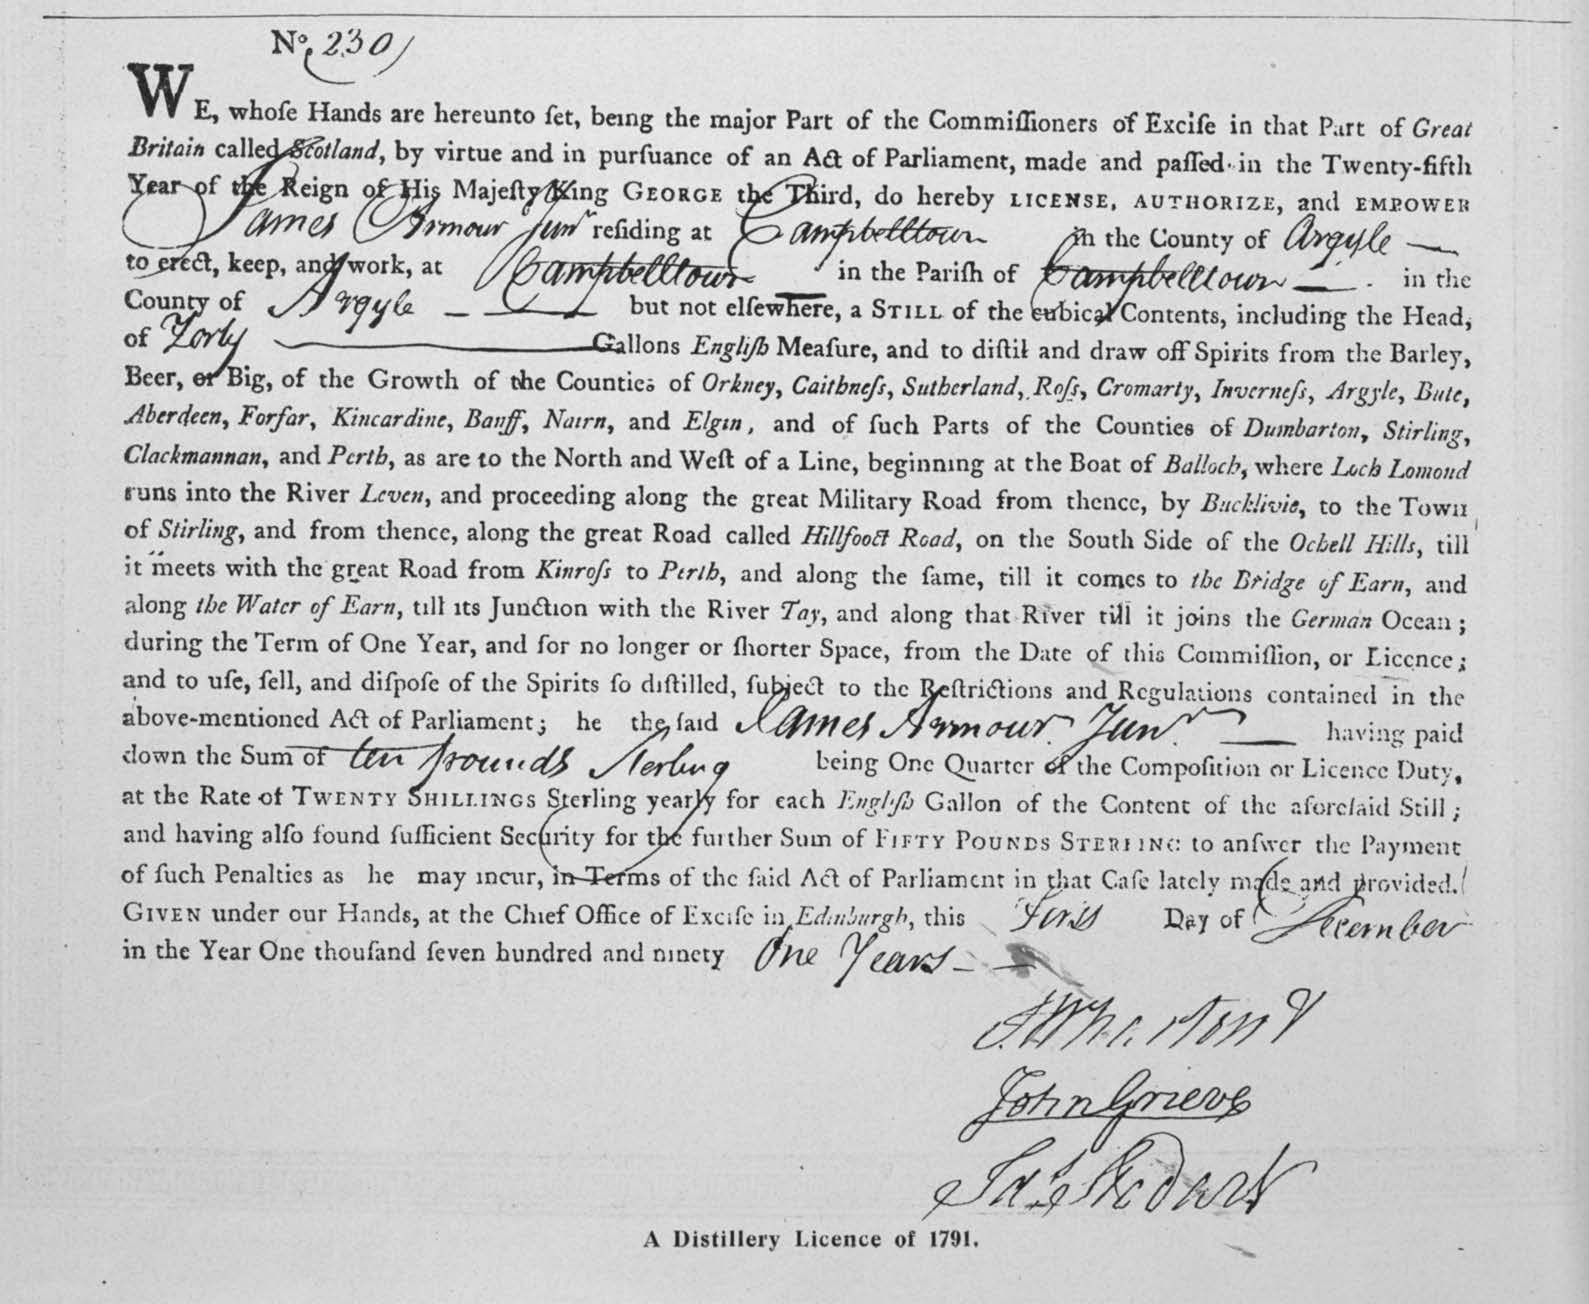 No. 230
WE, whoſe Hands are hereunto ſet, being the major Part of the Commiſſioners of Exciſe in that Part of Great
Britain called Scotland, by virtue and in purſuance of an Act of Parliament, made and paſſed in the Twenty-fifth
Year of the Reign of His Majeſty King GEORGE the Third, do hereby LICENSE, AUTHORIZE, and EMPOWER
James Armour Junr reſiding at Campbelltown in the County of Argyle —
to erect, keep, and work, at Campbelltown in the Pariſh of Campbelltown — in the
County of Argyle — — but not elſewhere, a STILL of the cubical Contents, including the Head,
of Forty — Gallons Engliſh Meaſure, and to diſtil and draw off Spirits from the Barley,
Beer, or Big, of the Growth of the Counties of Orkney, Caithneſs, Sutherland, Roſs, Cromarty, Inverneſs, Argyle, Bute,
Aberdeen, Forfar, Kincardine, Banff, Nairn, and Elgin, and of ſuch Parts of the Counties of Dumbarton, Stirling,
Clackmannan, and Perth, as are to the North and Weſt of a Line, beginning at the Boat of Balloch, where Loch Lomond
runs into the River Leven, and proceeding along the great Military Road from thence, by Bucklivie, to the Town
of Stirling, and from thence, along the great Road called Hillfooct Road, on the South Side of the Ochell Hills, till
it meets with the great Road from Kinroſs to Perth, and along the ſame, till it comes to the Bridge of Earn, and
along the Water of Earn, till its Junction with the River Tay, and along that River till it joins the German Ocean;
during the Term of One Year, and for no longer or ſhorter Space, from the Date of this Commiſſion, or Licence;
and to uſe, ſell, and diſpoſe of the Spirits ſo diſtilled, ſubject to the Reſtrictions and Regulations contained in the
above-mentioned Act of Parliament; he the ſaid James Armour Junr — having paid
down the Sum of ten pounds Sterling being One Quarter of the Compoſition or Licence Duty,
at the Rate of TWENTY SHILLINGS Sterling yearly for each Engliſh Gallon of the Content of the aforeſaid Still;
and having alſo found ſufficient Security for the further Sum of FIFTY POUNDS STERLING to anſwer the Payment
of ſuch Penalties as he may incur, in Terms of the ſaid Act of Parliament in that Caſe lately made and provided.
GIVEN under our Hands, at the Chief Office of Exciſe in Edinburgh, this First Day of December
in the Year One thouſand ſeven hundred and ninety One Years — —
Wharton
John Grieve
Jas Stodart
A Distillery Licence of 1791.